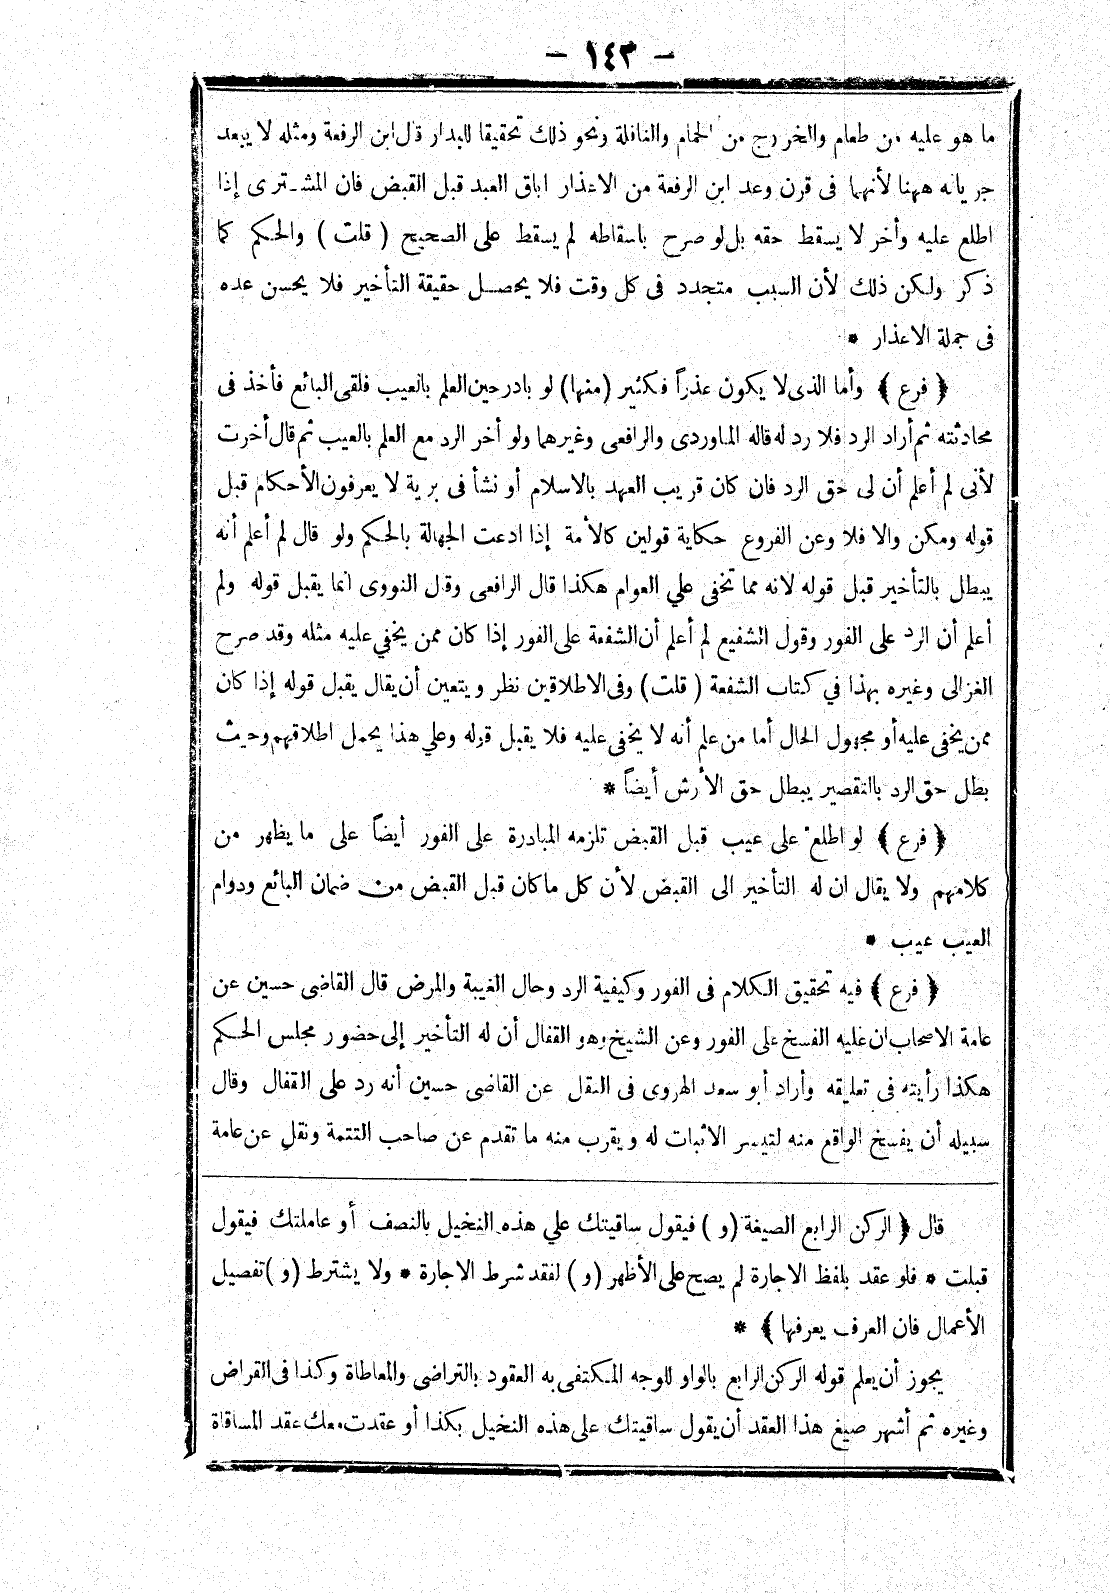 - ١٤٣ -
ما هو عليه من طعام والخروج من الحمام والنافلة ونحو ذلك تحقيقا للبدار قال ابن الرفعة ومثله لا يبعد
جريانه ههنا لأنهما فى قرن وعد ابن الرفعة من الاعذار اباق العبد قبل القبض فان المشترى إذا
اطلع عليه وأخر لا يسقط حقه بل لو صرح باسقاطه لم يسقط على الصحيح ( قلت ) والحكم كما
ذكر ولكن ذلك لأن السبب متجدد فى كل وقت فلا يحصل حقيقة التأخير فلا يحسن عده
فى جملة الاعذار *
﴿ فرع ﴾ وأما الذى لا يكون عذراً فكثير (منها) لو بادر حين العلم بالعيب فلقى البائع فأخذ فى
محادثته ثم أراد الرد فلا رد له قاله الماوردى والرافعى وغيرهما ولو أخر الرد مع العلم بالعيب ثم قال أخرت
لأنى لم أعلم أن لى حق الرد فان كان قريب العهد بالاسلام أو نشأ فى برية لا يعرفون الأحكام قبل
قوله ومكن والا فلا وعن الفروع حكاية قولين كالأمة إذا ادعت الجهالة بالحكم ولو قال لم أعلم أنه
يبطل بالتأخير قبل قوله لانه مما تخفى علي العوام هكذا قال الرافعى وقال النووى انما يقبل قوله ولم
أعلم أن الرد على الفور وقول الشفيع لم أعلم أن الشفعة على الفور إذا كان ممن يخفي عليه مثله وقد صرح
الغزالى وغيره بهذا في كتاب الشفعة ( قلت ) وفى الاطلاقين نظر ويتعين أن يقال يقبل قوله إذا كان
ممن يخفى عليه أو مجهول الحال أما من علم أنه لا يخفى عليه فلا يقبل قوله وعلي هذا يحمل اطلاقهم وحيث
بطل حق الرد بالتقصير يبطل حق الأرش أيضاً *
﴿ فرع ﴾ لو اطلع على عيب قبل القبض تلزمه المبادرة على الفور أيضاً على ما يظهر من
كلامهم ولا يقال ان له التأخير الى القبض لأن كل ما كان قبل القبض من ضمان البائع ودوام
العيب عيب *
﴿ فرع ﴾ فيه تحقيق الكلام فى الفور وكيفية الرد وحال الغيبة والمرض قال القاضى حسين عن
عامة الاصحاب ان عليه الفسخ على الفور وعن الشيخ وهو القفال أن له التأخير إلى حضور مجلس الحكم
هكذا رأيته فى تعليقه وأراد أبو سعد الهروى فى النقل عن القاضى حسين أنه رد على القفال وقال
سبيله أن يفسخ الواقع منه لتيسر الاثبات له ويقرب منه ما تقدم عن صاحب التتمة ونقل عن عامة
قال ﴿ الركن الرابع الصيغة ( و ) فيقول ساقيتك علي هذه النخيل بالنصف أو عاملتك فيقول
قبلت * فلو عقد بلفظ الاجارة لم يصح على الأظهر ( و ) لفقد شرط الاجارة * ولا يشترط ( و ) تفصيل
الأعمال فان العرف يعرفها ﴾ *
يجوز أن يعلم قوله الركن الرابع بالواو للوجه المكتفى به العقود بالتراضى والمعاطاة وكذا فى القراض
وغيره ثم أشهر صيغ هذا العقد أن يقول ساقيتك على هذه النخيل بكذا أو عقدت معك عقد المساقاة